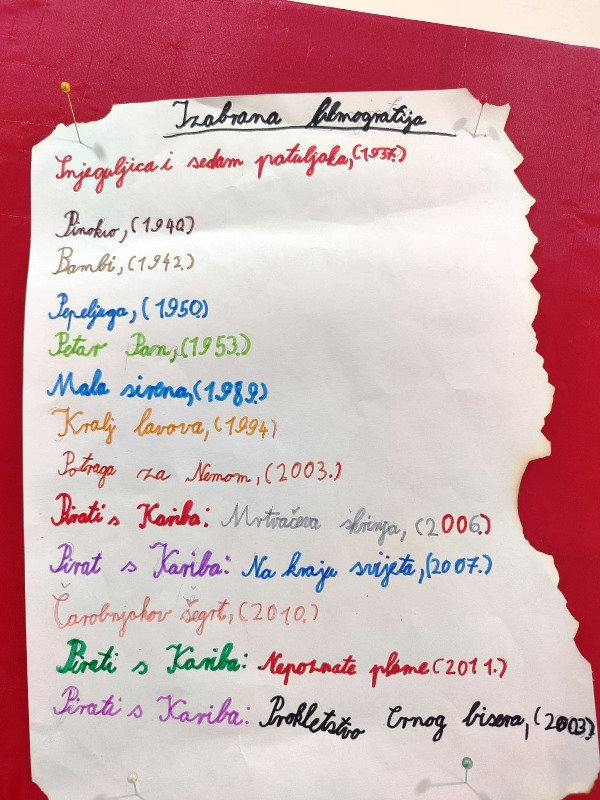 Izabrana filmografija
Snjeguljica i sedam patuljaka, (1937.)
Pinokio, (1940)
Bambi, (1942.)
Pepeljuga, (1950.)
Petar Pan, (1953.)
Mala sirena, (1989.)
Kralj lavova, (1994)
Potraga za Nemom, (2003.)
Pirati s Kariba: Mrtvačeva škrinja, (2006.)
Pirat s Kariba: Na kraju svijeta, (2007.)
Čarobnjakov šegrt, (2010.)
Pirati s Kariba: Nepoznate plime (2011.)
Pirati s Kariba: Prokletstvo Crnog bisera, (2003)